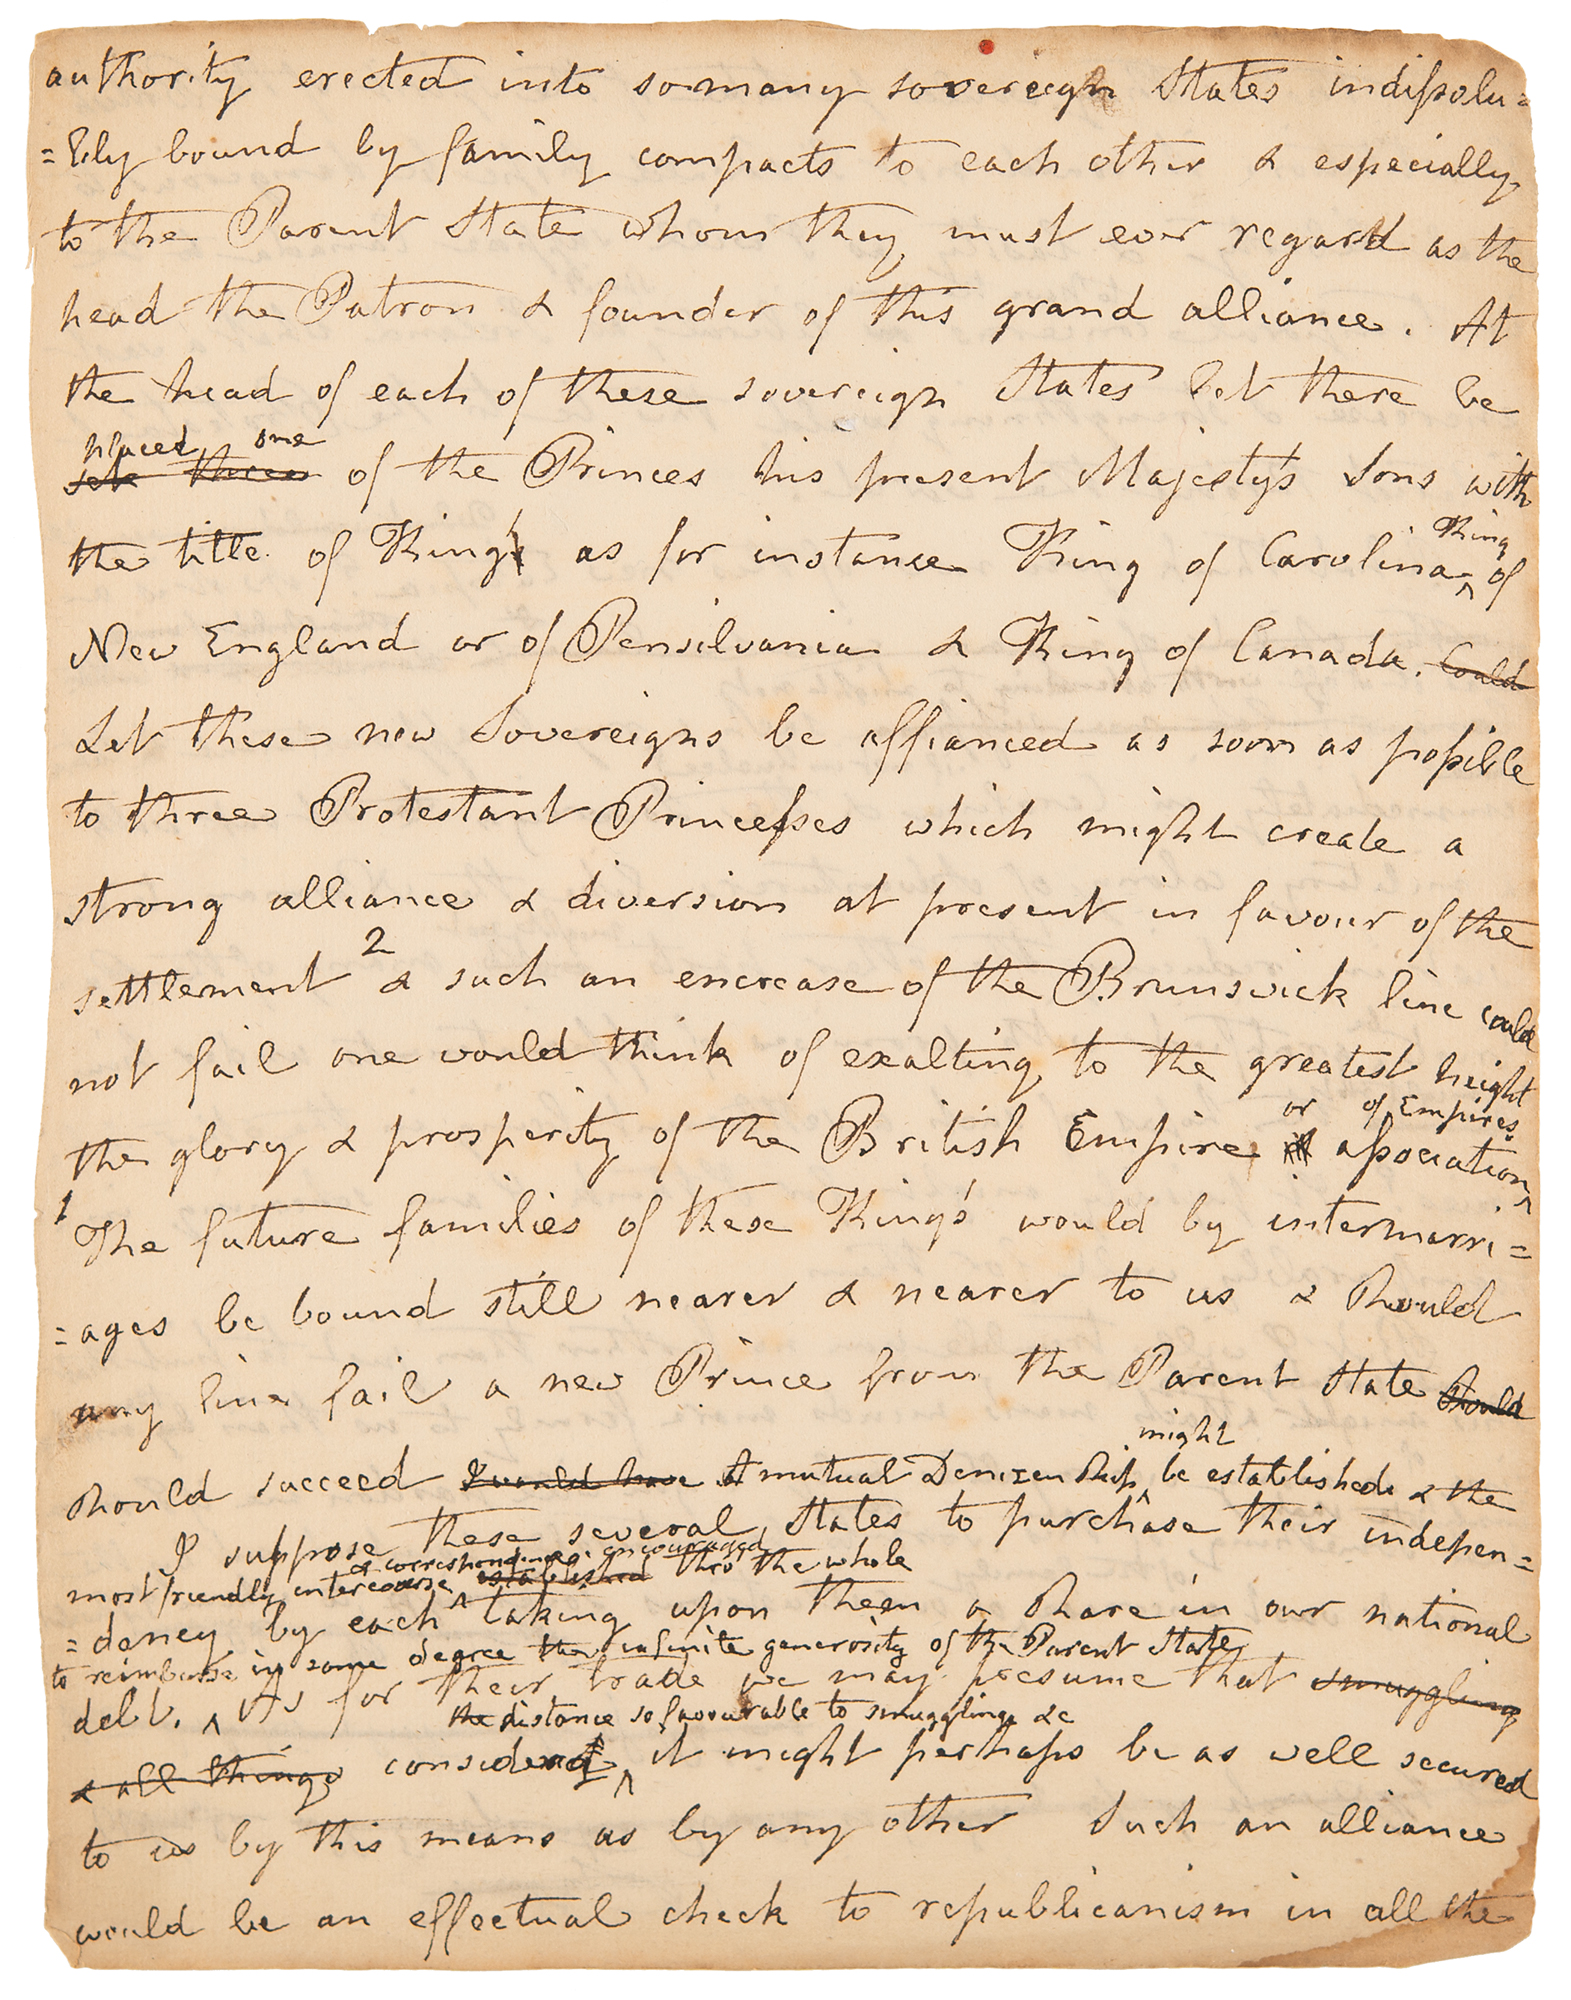 authority erected into so many sovereign States indissolu=
=bly bound by family compacts to each other & especially
to the Parent State whom they must ever regard as the
head the Patron & founder of this grand alliance. At
the head of each of these sovereign States let there be
placed one
of the Princes his present Majesty's Sons with
King
the title of King as for instance King of Carolina ^ of
New England or of Pensilvania & King of Canada. Could
Let these new Sovereigns be affianced as soon as possible
to three Protestant Princesses which might create a
strong alliance & diversion at present in favour of the
settlement 2 & such an encrease of the Brunswick line could
not fail one would think of exalting to the greatest height
or of Empires.
the glory & prosperity of the British Empire association ^
1 The future families of these King's would by intermarri=
=ages be bound still nearer & nearer to us & should
any line fail a new Prince from the Parent State should
might
should succeed I would have A mutual Denizenship ^ be established & the
I suppose these several States to purchase their indepen=
& correspondence encouraged
most friendly intercourse established thro the whole
=dency by each ^ taking upon them a share in our national
to reimburse in some degree the infinite generosity of the Parent State
debt. ^ As for their trade we may presume that smuggling
the distance so favourable to smuggling &c
& all things considered ^ it might perhaps be as well secured
to us by this means as by any other Such an alliance
would be an effectual check to republicanism in all the